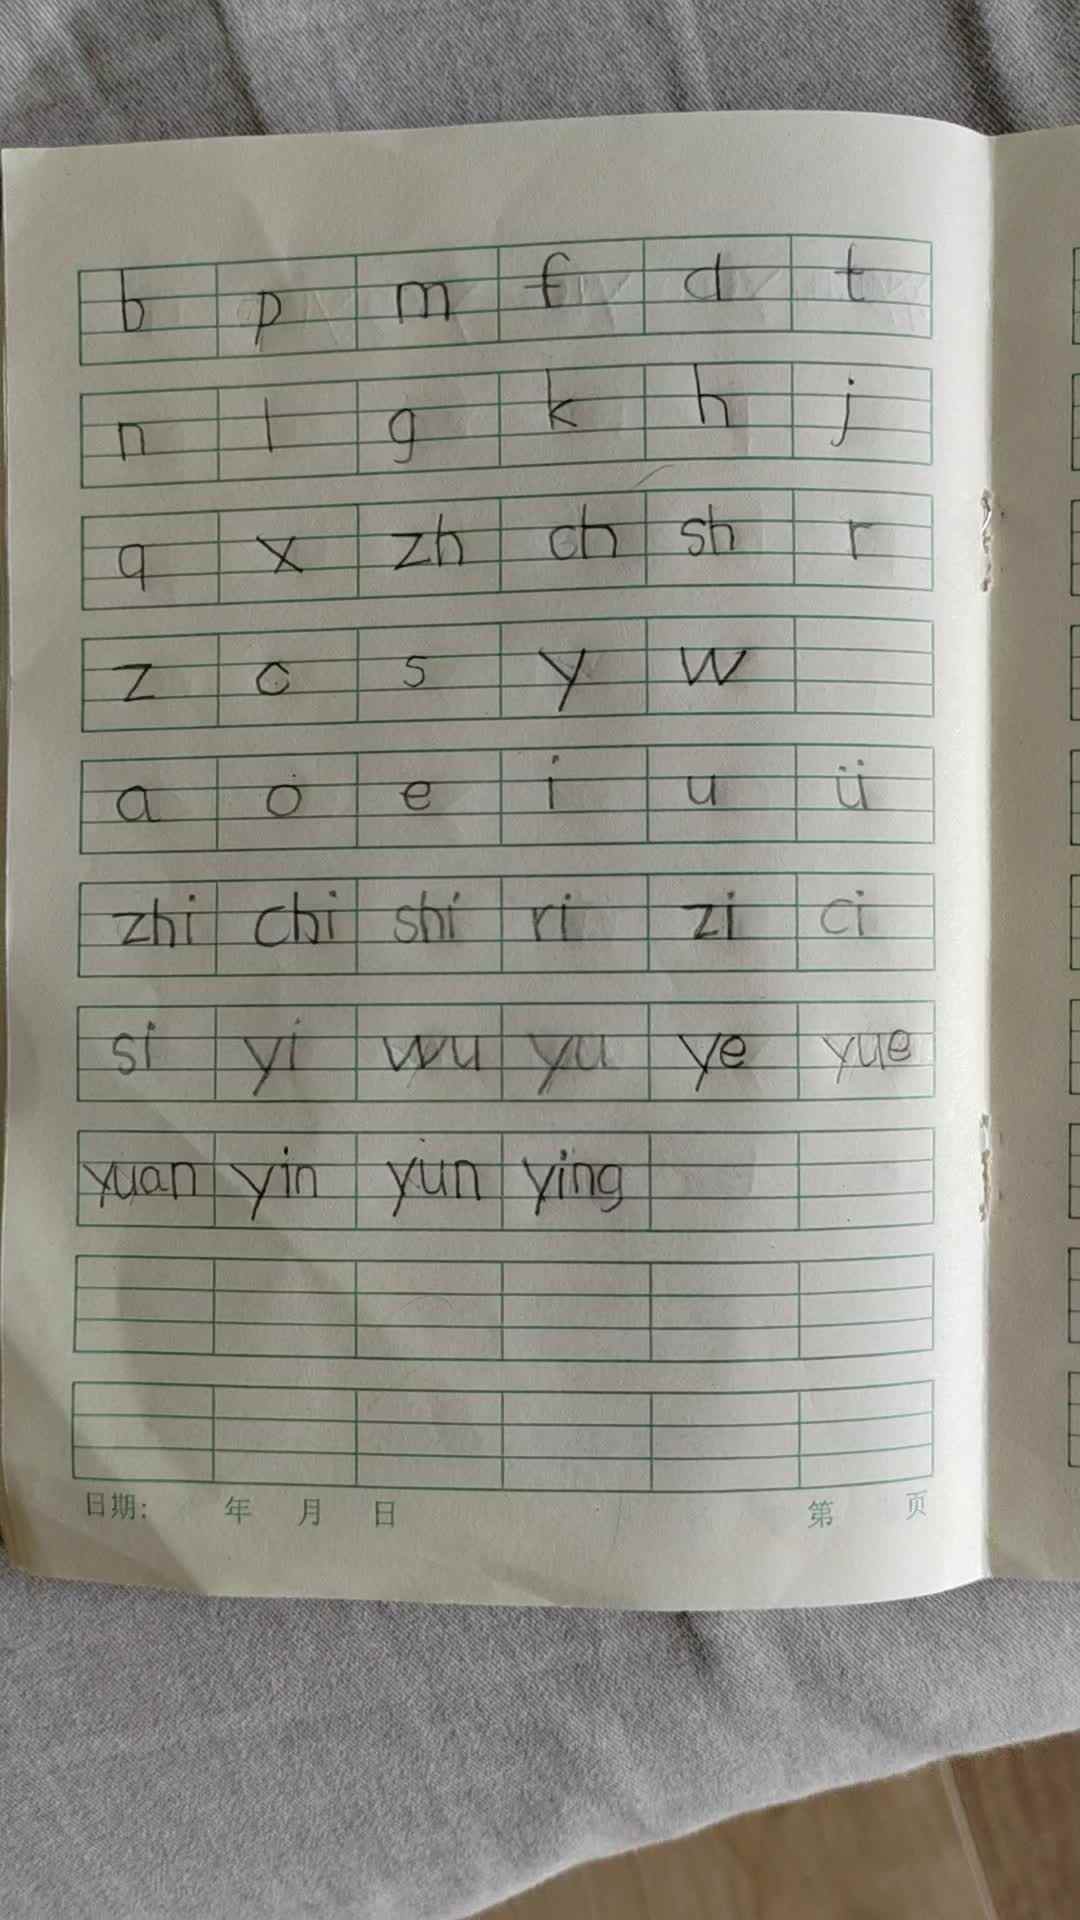 b p m f d t
n l g k h j
q x zh ch sh r
z c s y w
a o e i u ü
zhi chi shi ri zi ci
si yi wu yu ye yue
yuan yin yun ying
日期: 年 月 日 第 页